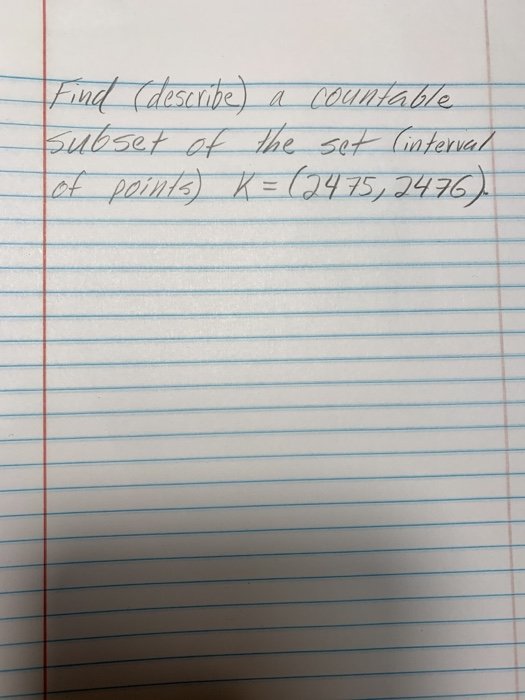 Find (describe) a countable
subset of the set (interval
of points) K = (2475, 2476).